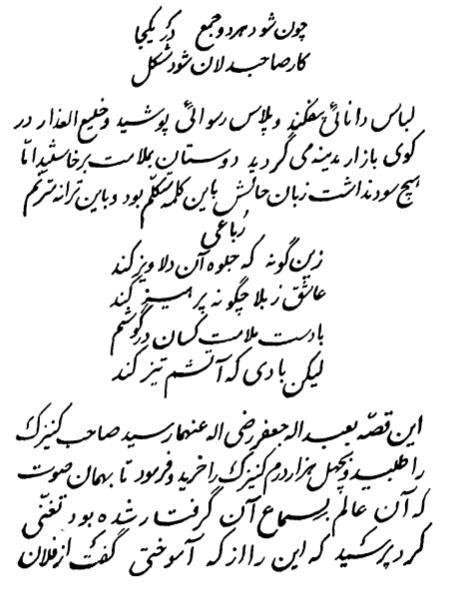 چون شود هر دو جمع در یکجا
کار صاحبدلان شود مشکل
لباس دانائی بیفکند و پلاس رسوائی پوشید و خلیع العذار در
کوی بازار مدینه می گردید دوستان بملامت برخاستند اما
هیچ سود نداشت زبان حالش باین کلمه متکلم بود و باین ترانه مترنم
رباعی
زین گونه که جلوه آن دلاویز کند
عاشق ز بلا چگونه پرهیز کند
بادست ملامت کسان در گوشم
لیکن بادی که آتشم تیز کند
این قصه بعبد اله جعفر رضی اله عنهما رسید صاحب کنیزک
را طلبید و بچهل هزار درم کنیزک را خرید و فرمود تا بهمان صوت
که آن عالم بسماع آن گرفتار شده بود تغنی
کرد پرسید که این را از که آموختی گفت از فلان